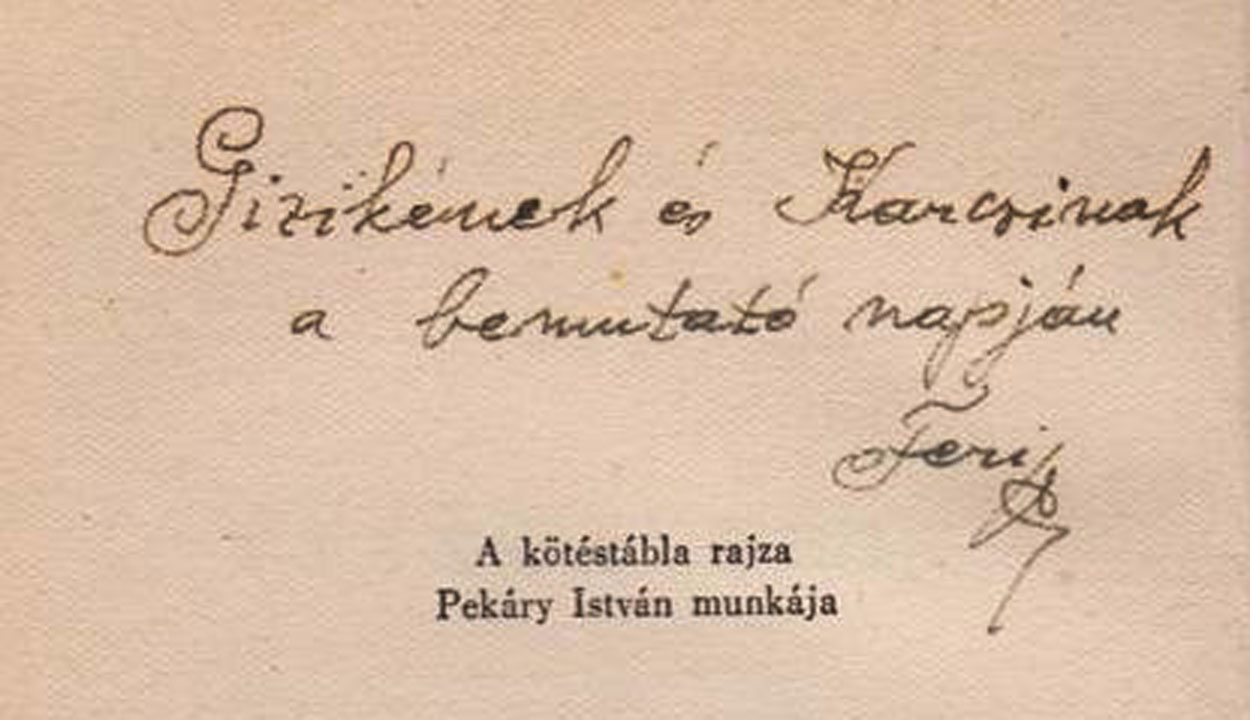 Gizikének és Karcsinak
a bemutató napján
Feri
A kötéstábla rajza
Pekáry István munkája